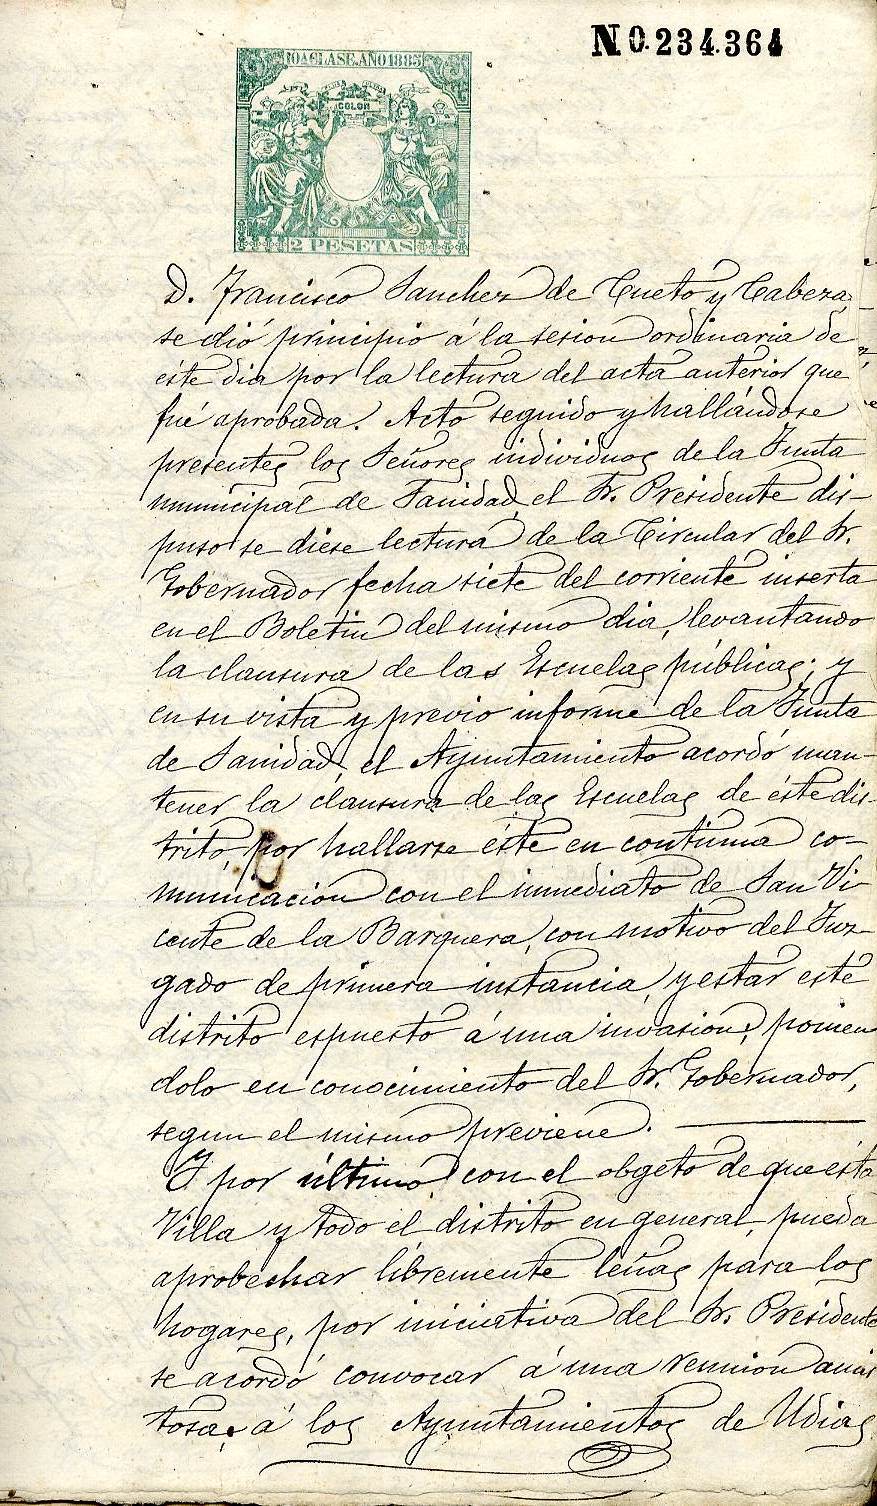 N 0.234.364
10A CLASE. AÑO 1885
COLON
2 PESETAS
D. Francisco Sanchez de Cueto y Cabeza,
se dió principio á la sesion ordinaria de
éste dia por la lectura del acta anterior que
fué aprobada. Acto seguido y hallándose
presentes los Señores individuos de la Junta
municipal de Sanidad, el Sr. Presidente dis-
puso se diese lectura de la Circular del Sr.
Gobernador, fecha siete del corriente inserta
en el Boletin del mismo dia, levantando
la clausura de las Escuelas públicas; y
en su vista y previo informe de la Junta
de Sanidad, el Ayuntamiento acordó man-
tener la clausura de las Escuelas de éste dis-
trito, por hallarse éste en continua co-
municacion con el inmediato de San Vi-
cente de la Barquera, con motivo del Juz-
gado de primera instancia, y estar este
distrito espuesto á una invasion; ponien
dolo en conocimiento del Sr. Gobernador,
segun el mismo previene.
Y por último, con el obgeto de que ésta
Villa y todo el distrito en general, pueda
aprobechar libremente leñas para los
hogares, por iniciativa del Sr. Presidente
se acordó convocar á una reunion amis
tosa, á los Ayuntamientos de Udias